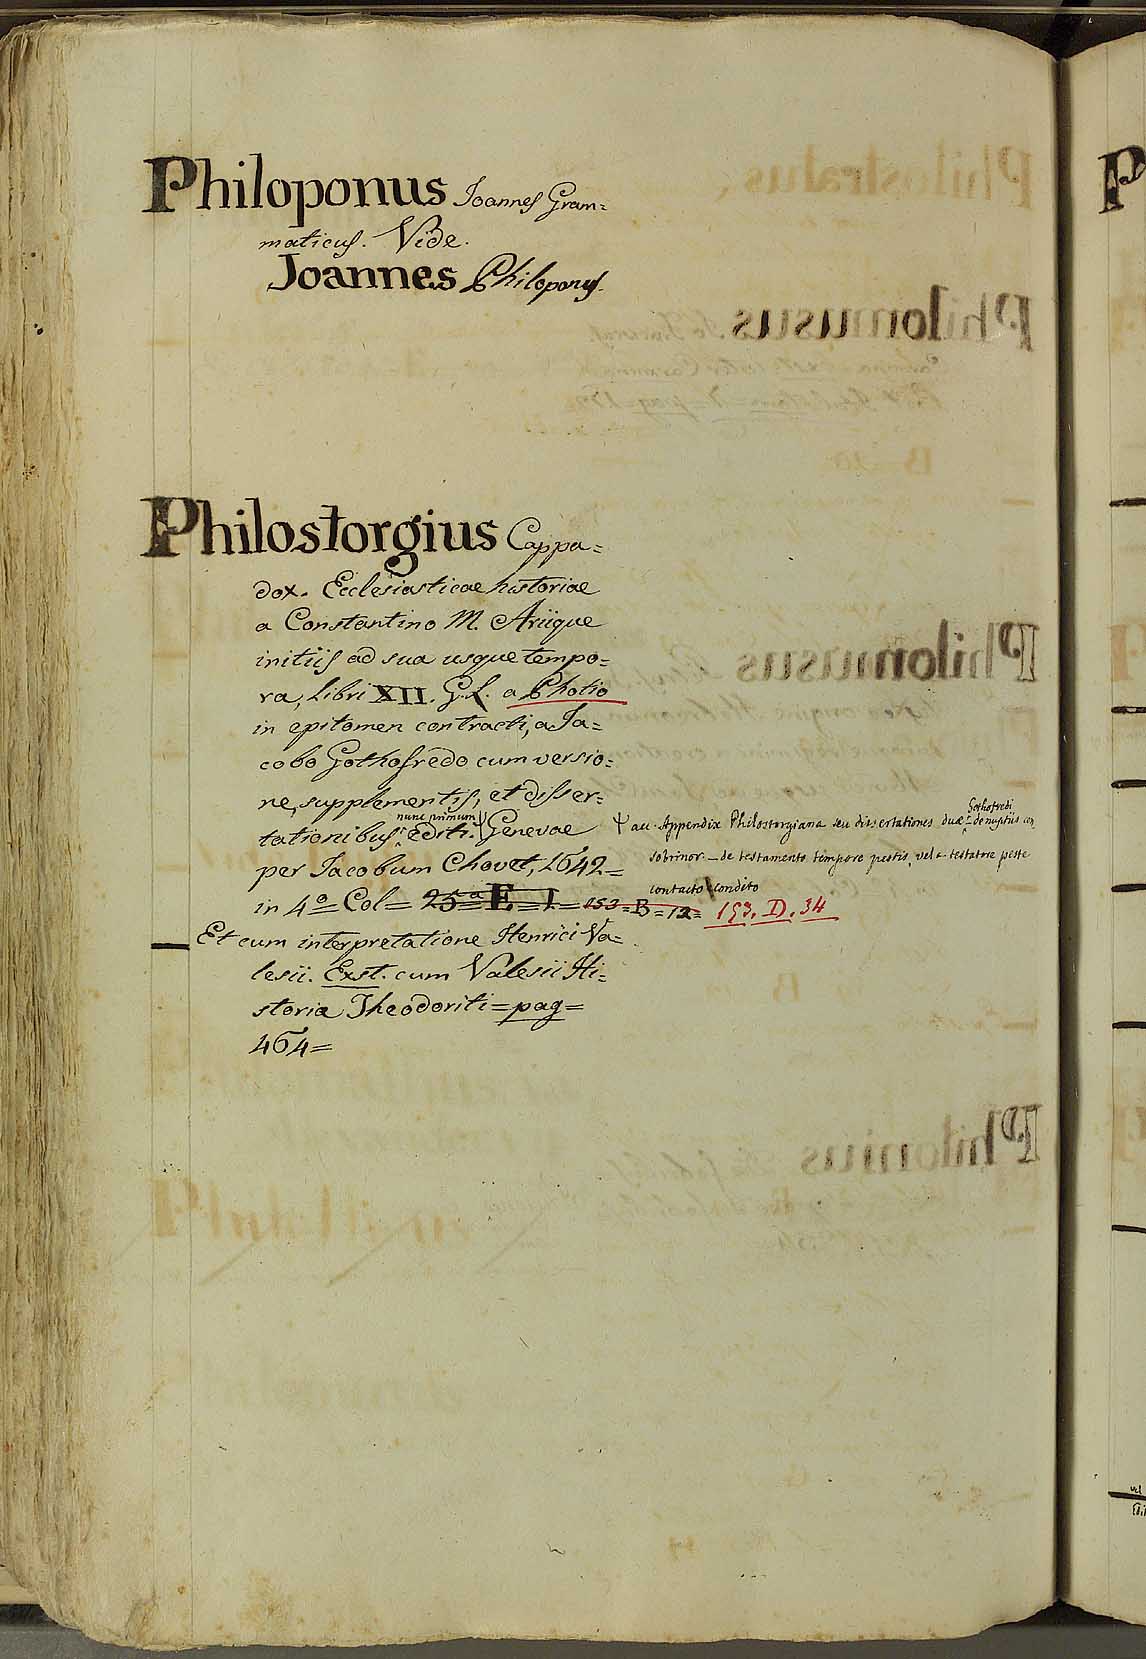 Philoponus Joannes Gram=
maticus. Vide.
Joannes Philoponus.
Philostorgius Cappa=
dox. Ecclesiasticae historiae
a Constantino M. Ariique
initiis ad sua usque tempo=
ra, libri XII. G.L. a Photio
in epitomen contracti, a Ja=
cobo Gothofredo cum versio=
ne, supplementis, et disser=
tationibus nunc primum editi. Ψ Genevae
per Jacobum Chovet, 1642=
in 4º= Col= 25=ª E=I= 153=B=12= 153. D. 34
Ψ acc. Appendix Philostorgiana seu dissertationes duae Gothofredi - de nuptiis con
sobrinor - de testamento tempore pestis, vel a testatore peste
contacto condito
Et cum interpretatione Henrici Va=
lesii. Exst. cum Valesii Hi=
storia Theodoriti=pag=
464=